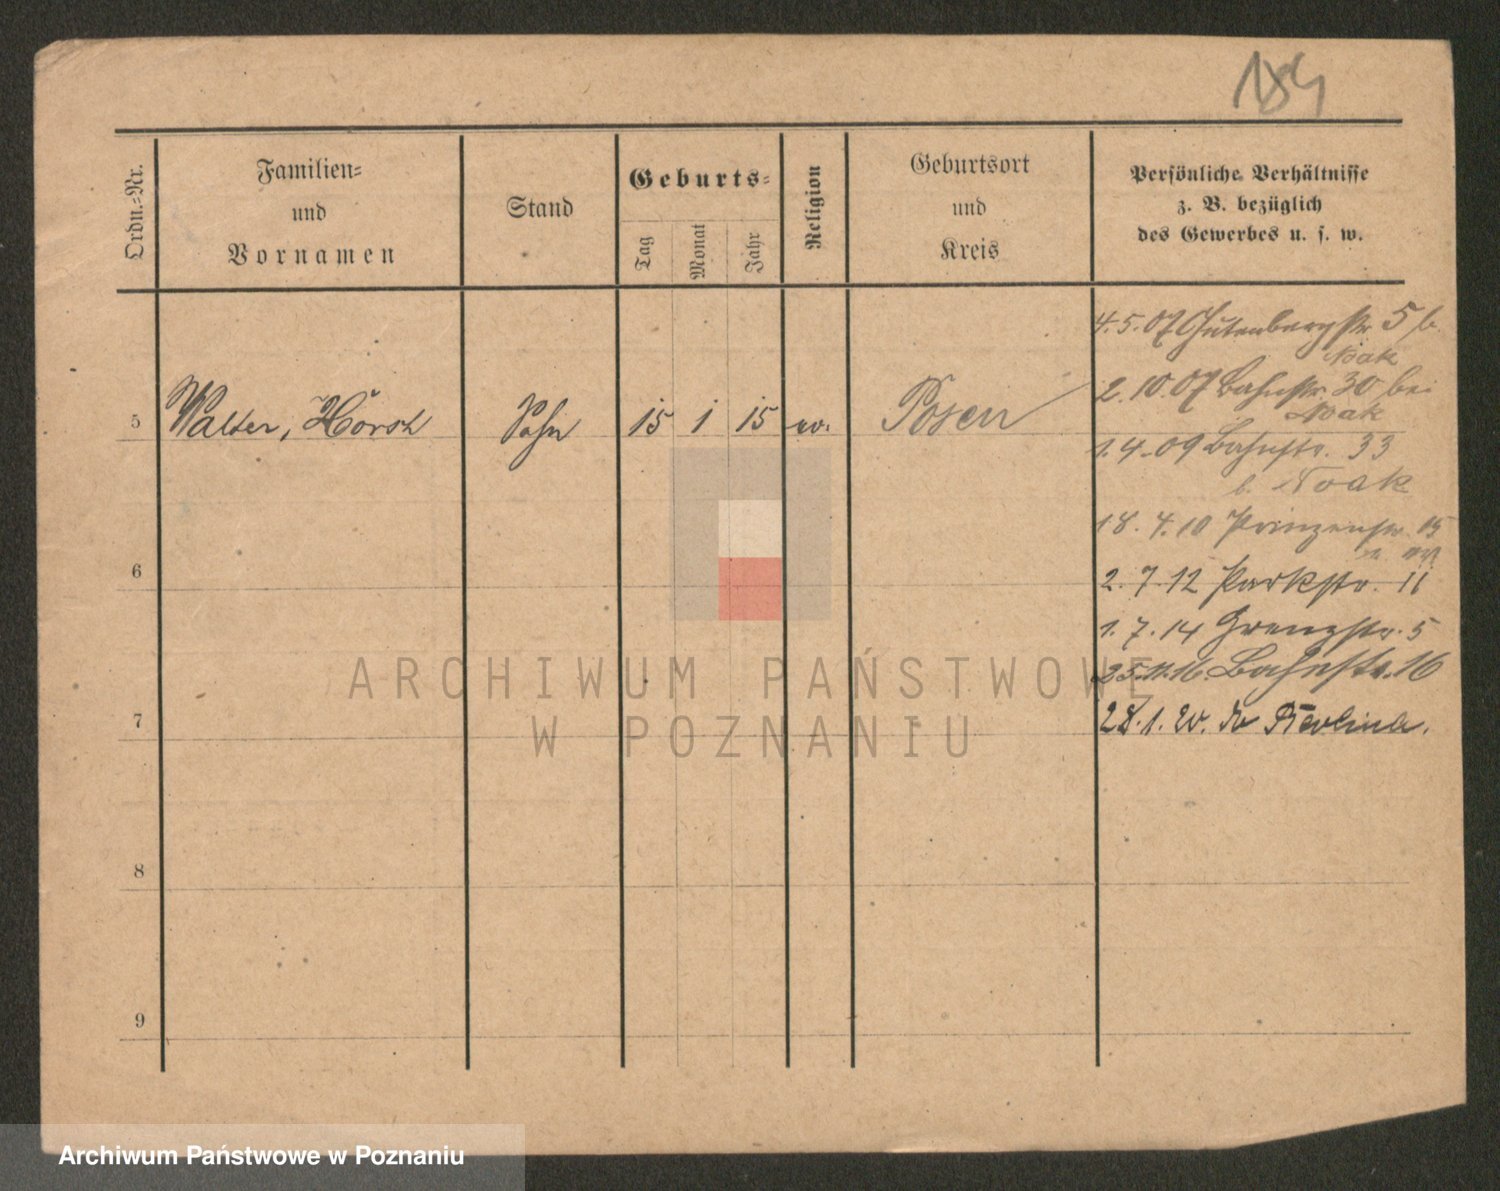 184
Ordn.-Nr.
Familien-
und
Vornamen
Stand
Geburts-
Tag
Monat
Jahr
Religion
Geburtsort
und
Kreis
Persönliche Verhältnisse
z. B. bezüglich
des Gewerbes u. s. w.
5
Walter, Horst
Sohn
15
1
15
ev.
Posen
4.5.07 Gutenbergstr. 5 b.
Noak
2.10.07 Bahnstr. 30 bei
Noak
1.4.09 Bahnstr. 33
b. Noak
18.4.10 Prinzenstr. 15
2.7.12 Parkstr. 11
1.7.14 Grenzstr. 5
11.16. Bahnstr. 16
28.1.20. do Berlina.
6
7
8
9
ARCHIWUM PAŃSTWOWE
W POZNANIU
Archiwum Państwowe w Poznaniu